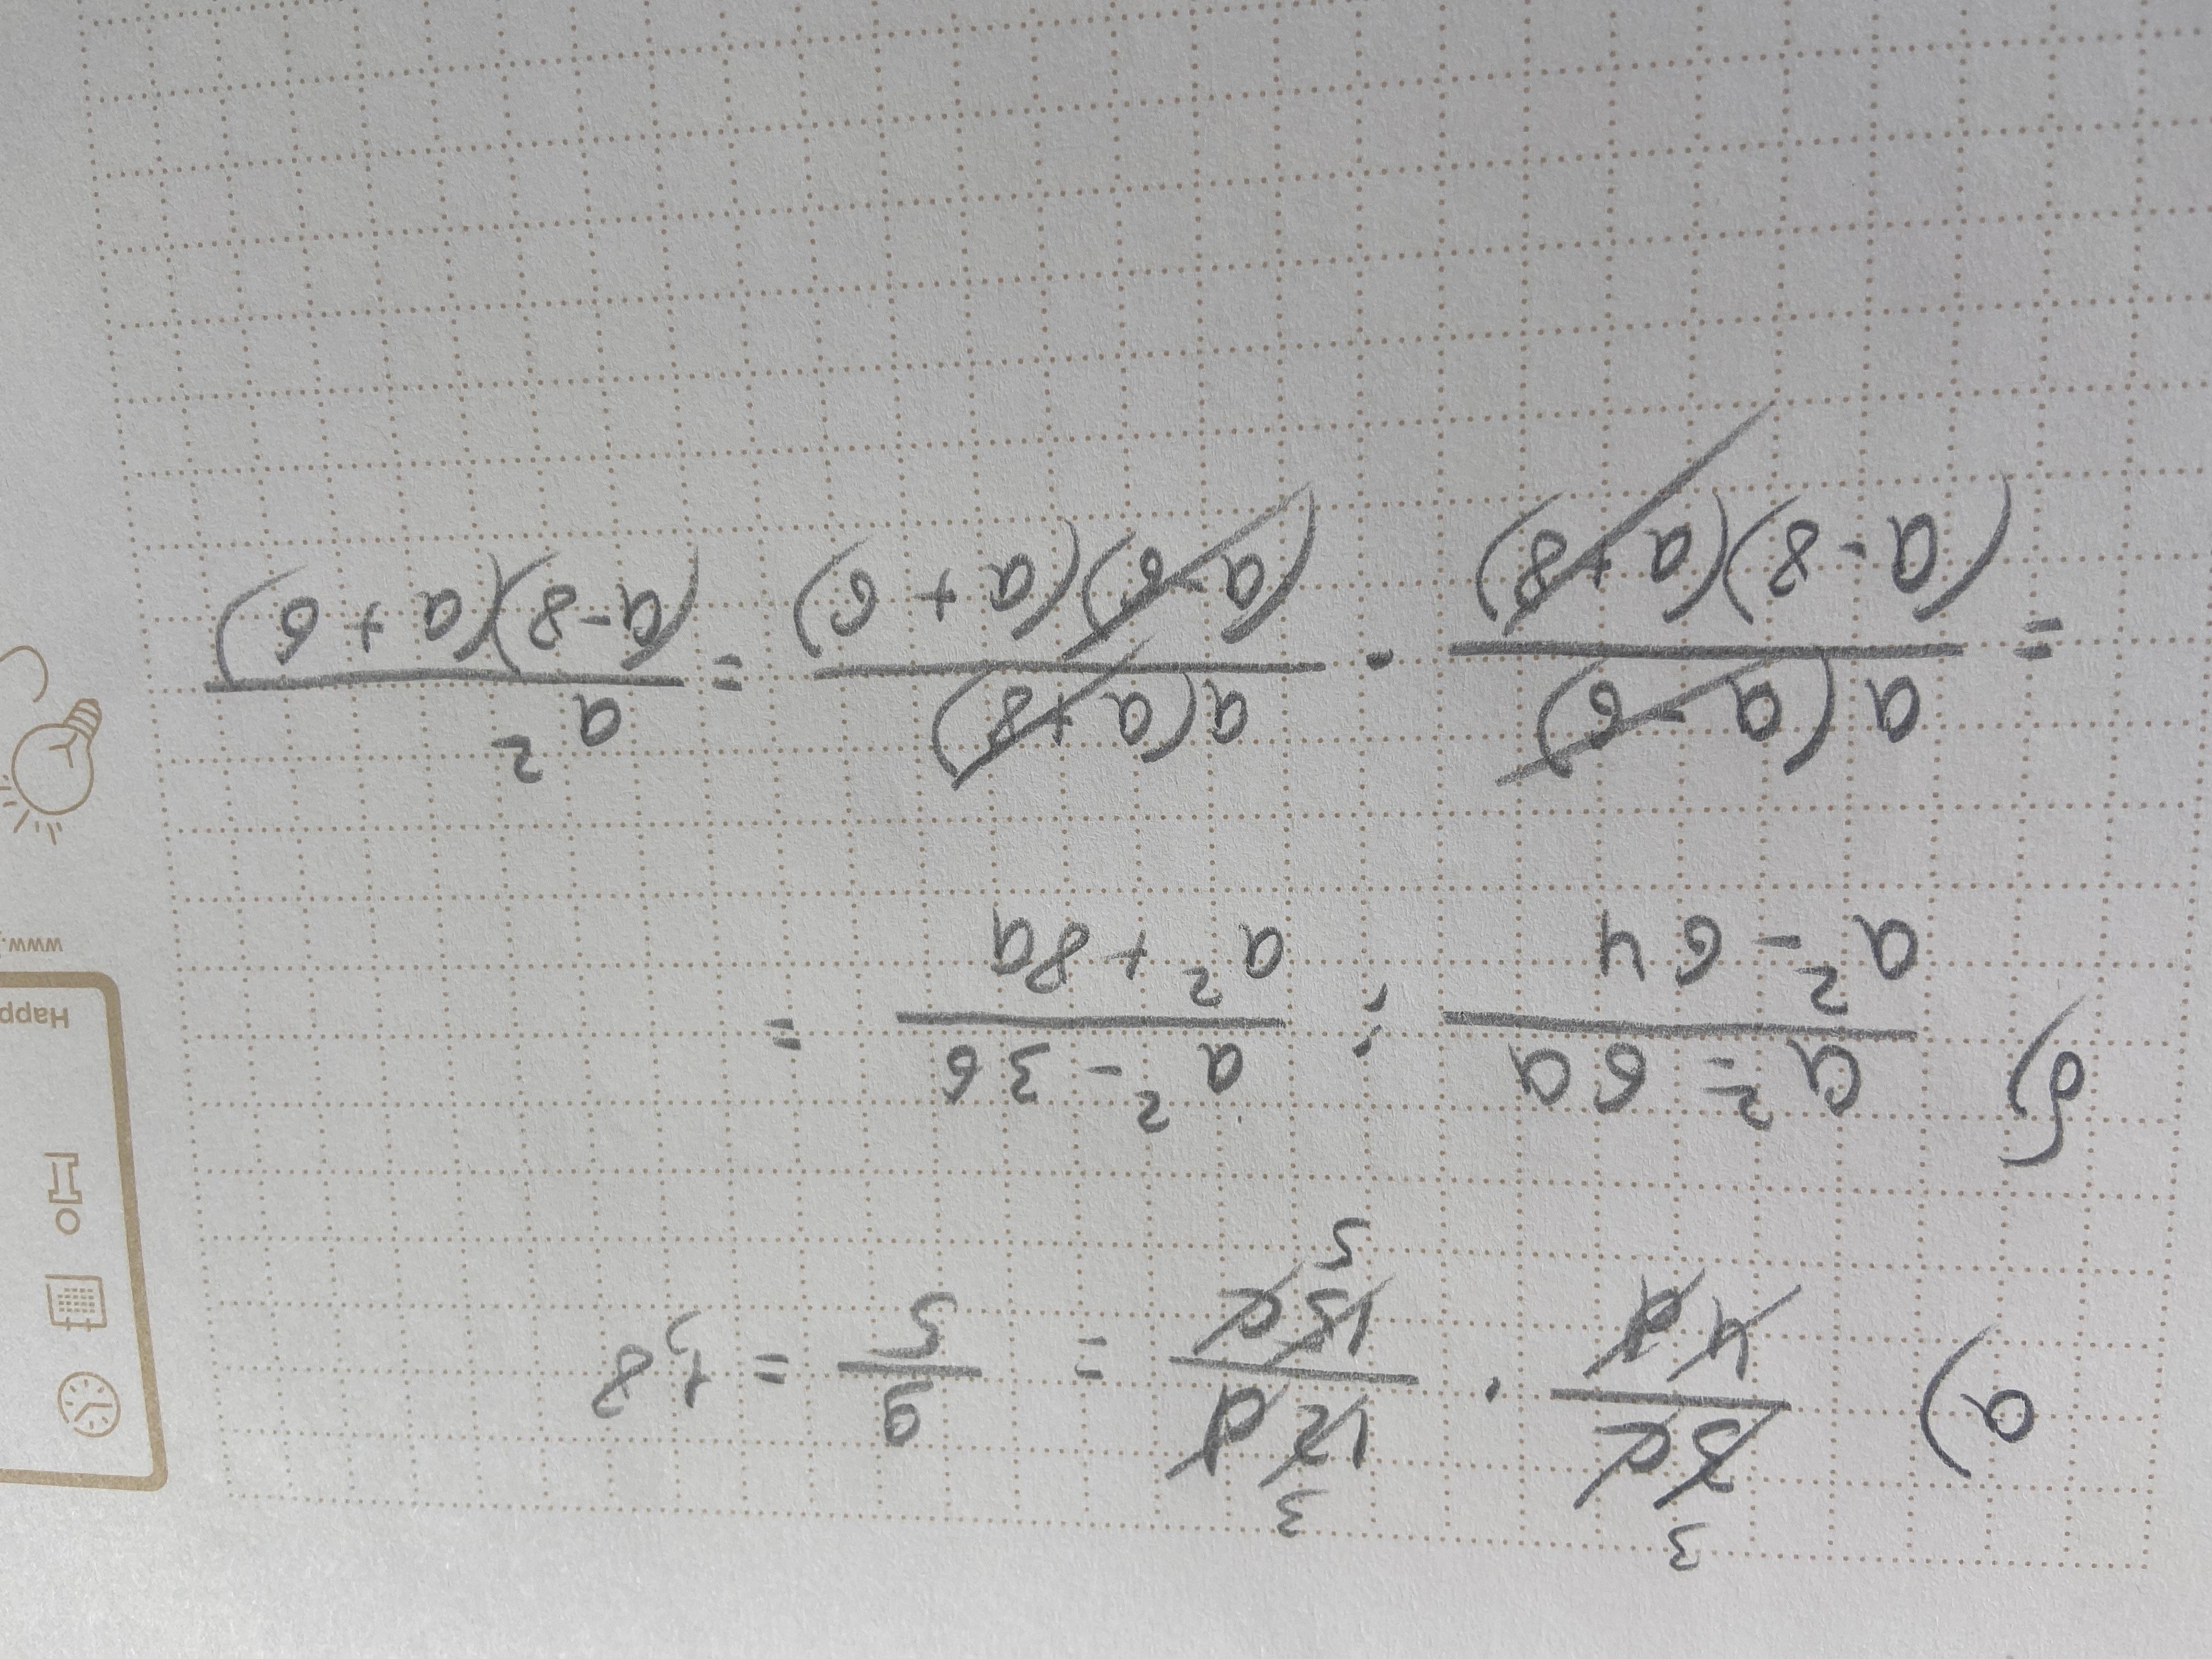 а) 9c/4a · 12a/15c = 9/5 = 1,8
3 3
5
б) a² - 6a / a² - 64 : a² - 36 / a² + 8a =
= a(a - 6) / (a - 8)(a + 8) · a(a + 8) / (a - 6)(a + 6) = a² / (a - 8)(a + 6)
Happ
www.